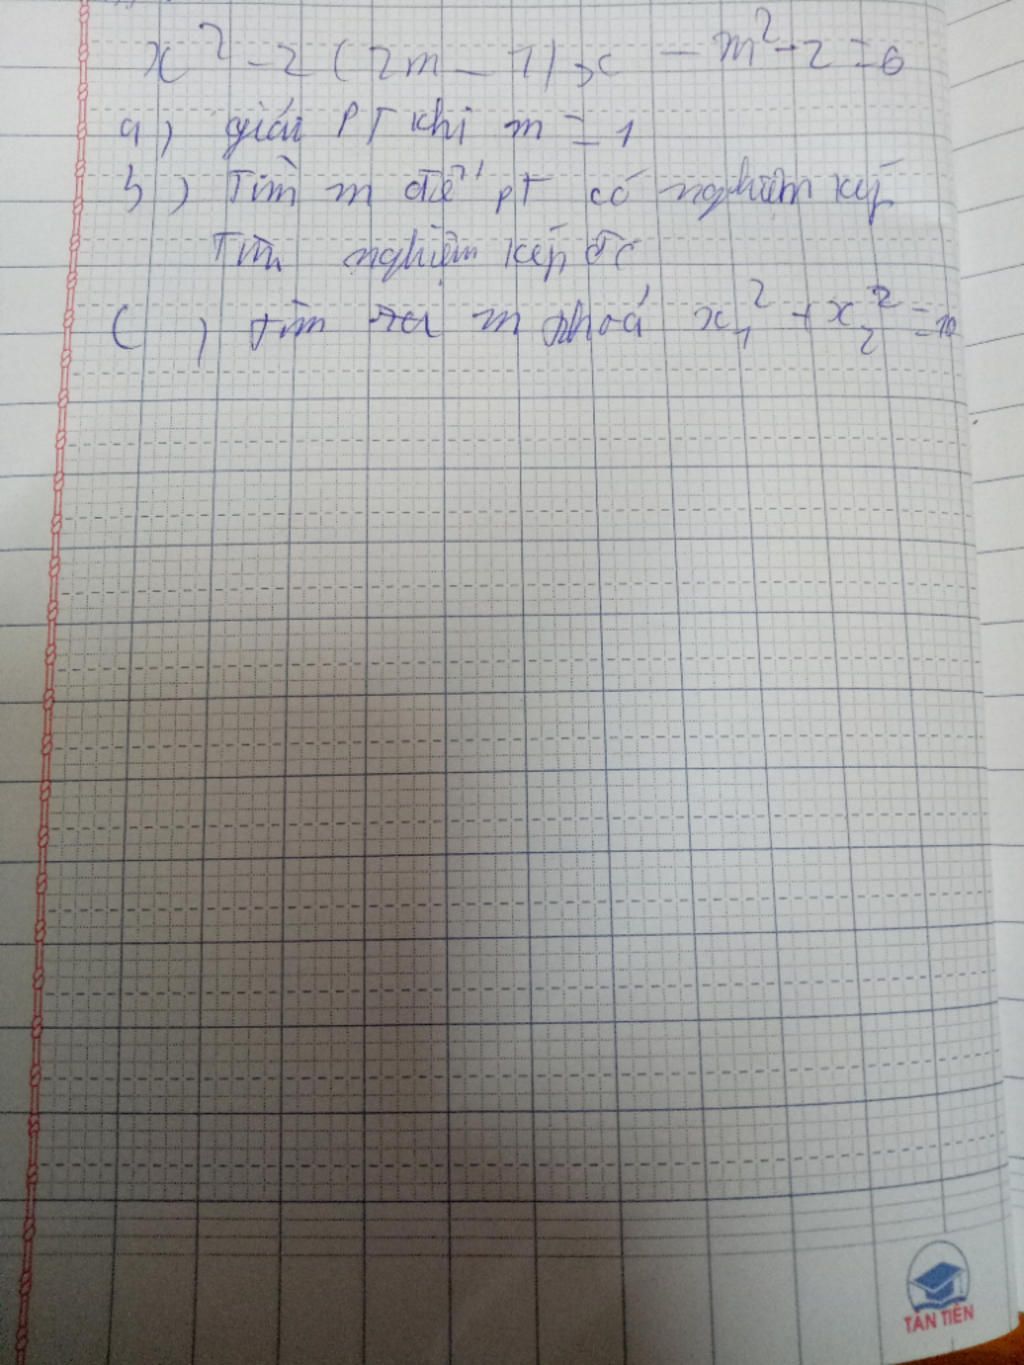 x² - 2 (2m - 1) x - m² - 2 = 0
a) giải PT khi m = 1
b) Tìm m để pT có nghiệm kép
Tìm nghiệm kép đó
c) tìm m thoả x₁² + x₂² = 10
TÂN TIẾN